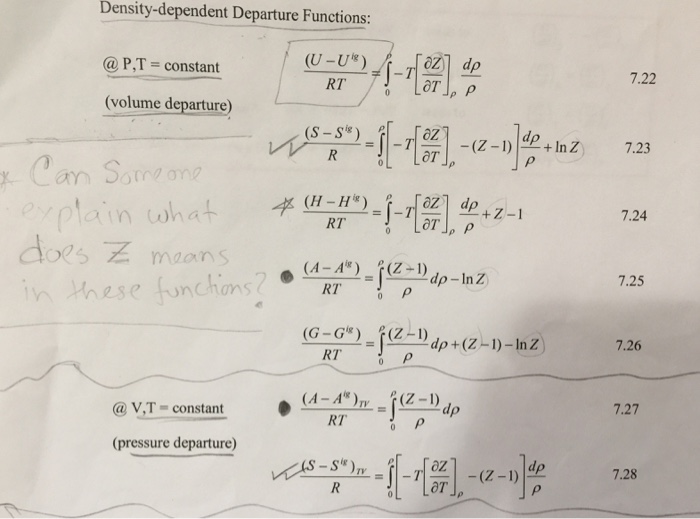 Density-dependent Departure Functions:
@ P,T = constant
(volume departure)
(U – U^ig) / RT = ∫₀^ρ –T[∂Z/∂T]_ρ dρ/ρ 7.22
(S – S^ig) / R = ∫₀^ρ [–T[∂Z/∂T]_ρ – (Z – 1)] dρ/ρ + ln Z 7.23
* Can Someone
explain what
does Z means
in these functions?
(H – H^ig) / RT = ∫₀^ρ –T[∂Z/∂T]_ρ dρ/ρ + Z – 1 7.24
(A – A^ig) / RT = ∫₀^ρ (Z – 1)/ρ dρ – ln Z 7.25
(G – G^ig) / RT = ∫₀^ρ (Z – 1)/ρ dρ + (Z – 1) – ln Z 7.26
@ V,T = constant
(pressure departure)
(A – A^ig)_TV / RT = ∫₀^ρ (Z – 1)/ρ dρ 7.27
(S – S^ig)_TV / R = ∫₀^ρ [–T[∂Z/∂T]_ρ – (Z – 1)] dρ/ρ 7.28